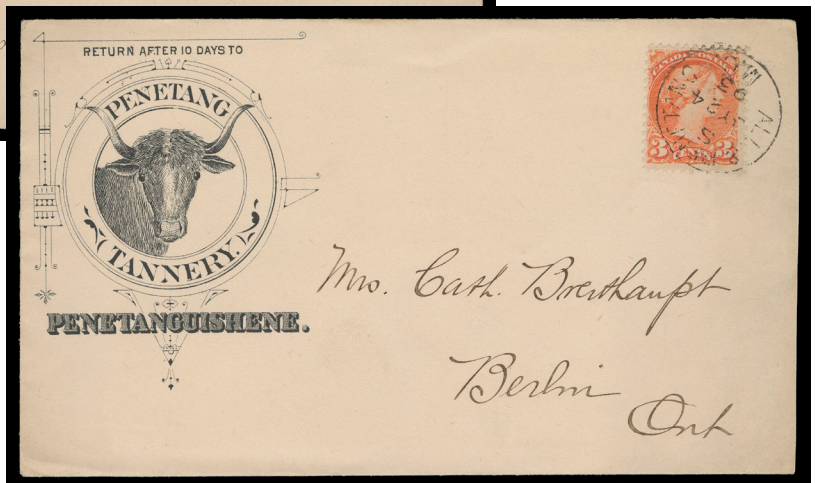 RETURN AFTER 10 DAYS TO
PENETANG
TANNERY.
PENETANGUISHENE.
CANADA POSTAGE
3 CENTS 3
Mrs. Cath. Breithaupt
Berlin
Ont